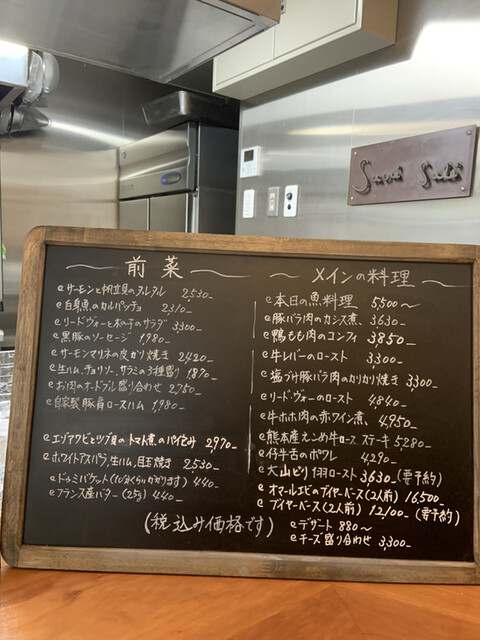 前菜
サーモンと帆立貝のタルタル 2,530-
白身魚のカルパッチョ 2,310-
リードヴォーと木の子のサラダ 3,300-
黒豚のソーセージ 1,980-
サーモンマリネの皮ガリ焼き 2,420-
生ハム,チョリソー,サラミの3種盛り 1,870-
お肉のオードブル盛り合わせ 2,750-
自家製豚肩ロースハム 1,980-
エゾアワビとツブ貝のトマト煮のパイ包み 2,970-
ホワイトアスパラ,生ハム,目玉焼き 2,530-
ドゥミバゲット(10分くらいかかります) 440-
フランス産バター(25g) 440-
(税込み価格です)
メインの料理
本日の魚料理 5,500~
豚バラ肉のカシス煮、 3,630-
鴨もも肉のコンフィ 3,850-
牛レバーのロースト 3,300-
塩づけ豚バラ肉のカリカリ焼き 3,300-
リードヴォーのロースト 4,840-
牛ホホ肉の赤ワイン煮、 4,950-
熊本産えこめ牛ロースステーキ 5,280-
仔牛舌のポワレ 4,290-
大山どり1羽ロースト 3,630-(要予約)
オマールエビのブイヤベース(2人前) 16,500-
ブイヤベース(2人前) 12,100-(要予約)
デザート 880~
チーズ盛り合わせ 3,300-